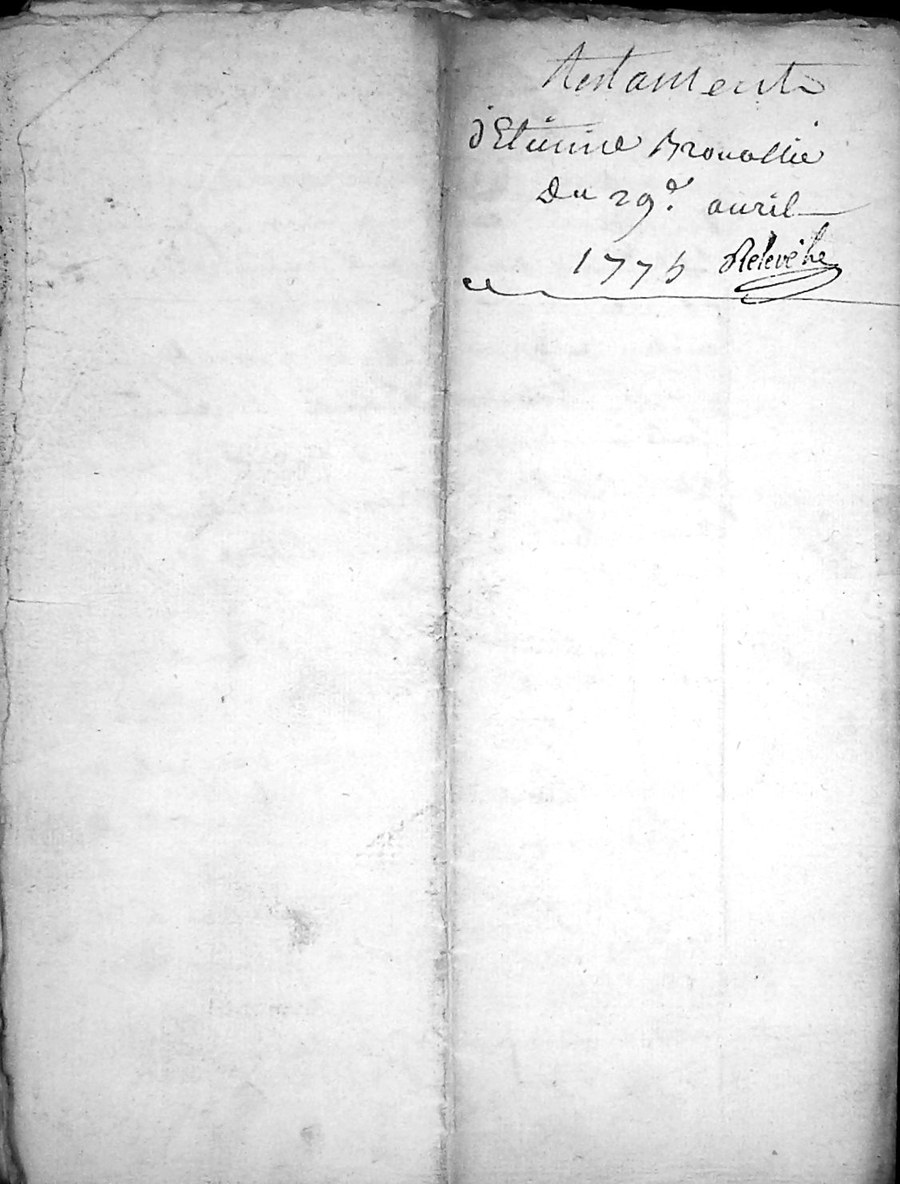 Testament
d'Etienne Brouallie
Du 29e. auril
1775